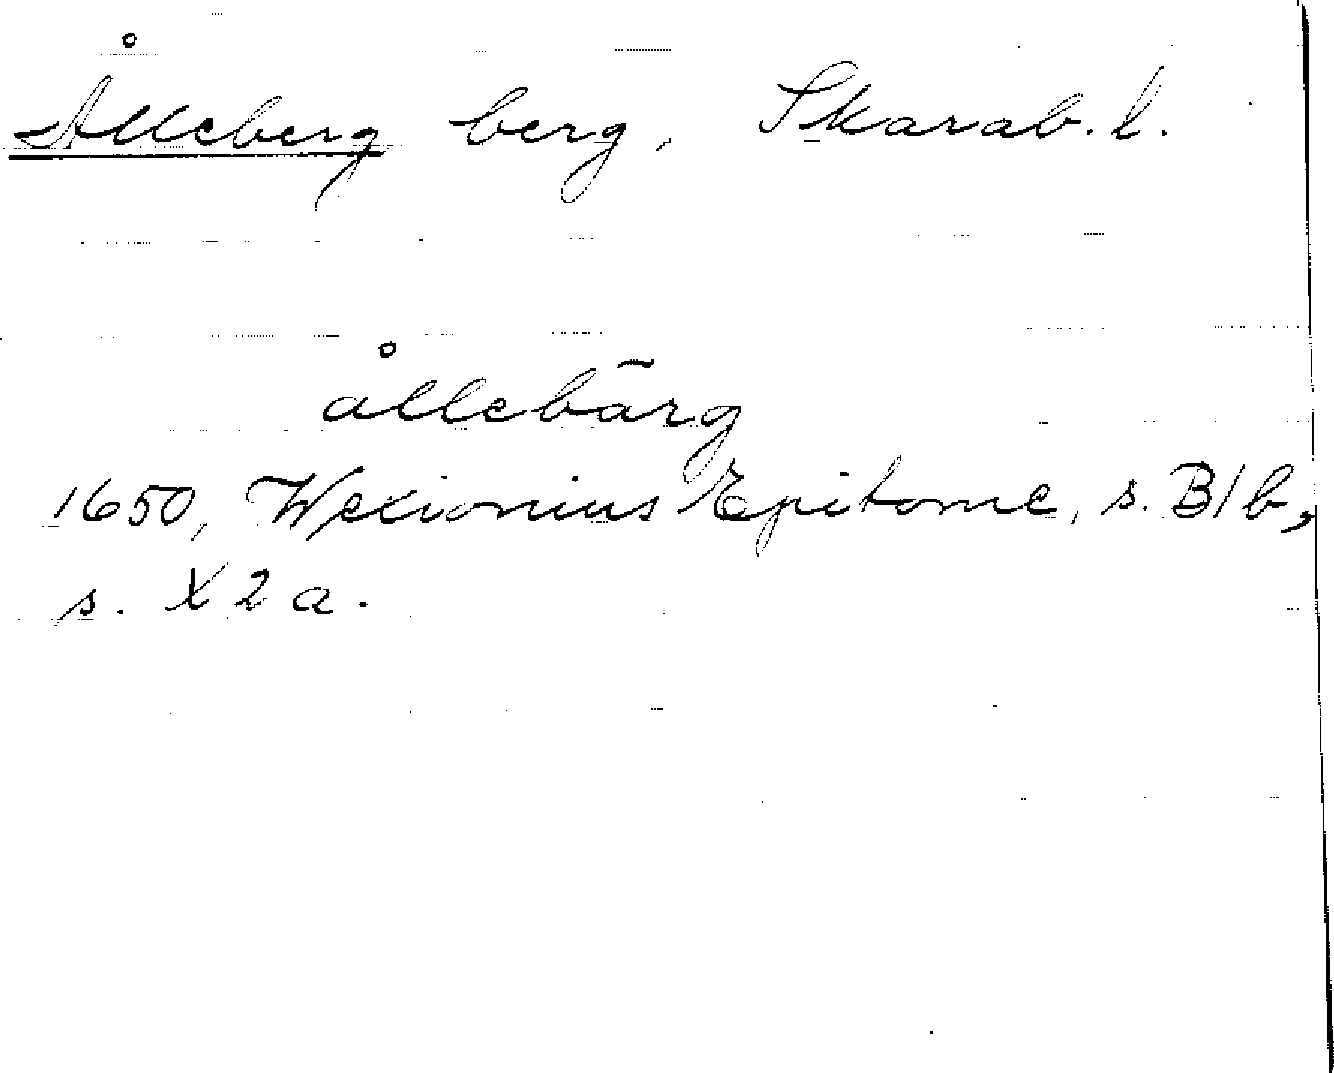 Ålleberg berg, Skarab. l.
ållebärg
1650, Wexionius Epitome, s. B1b,
s. X2a.